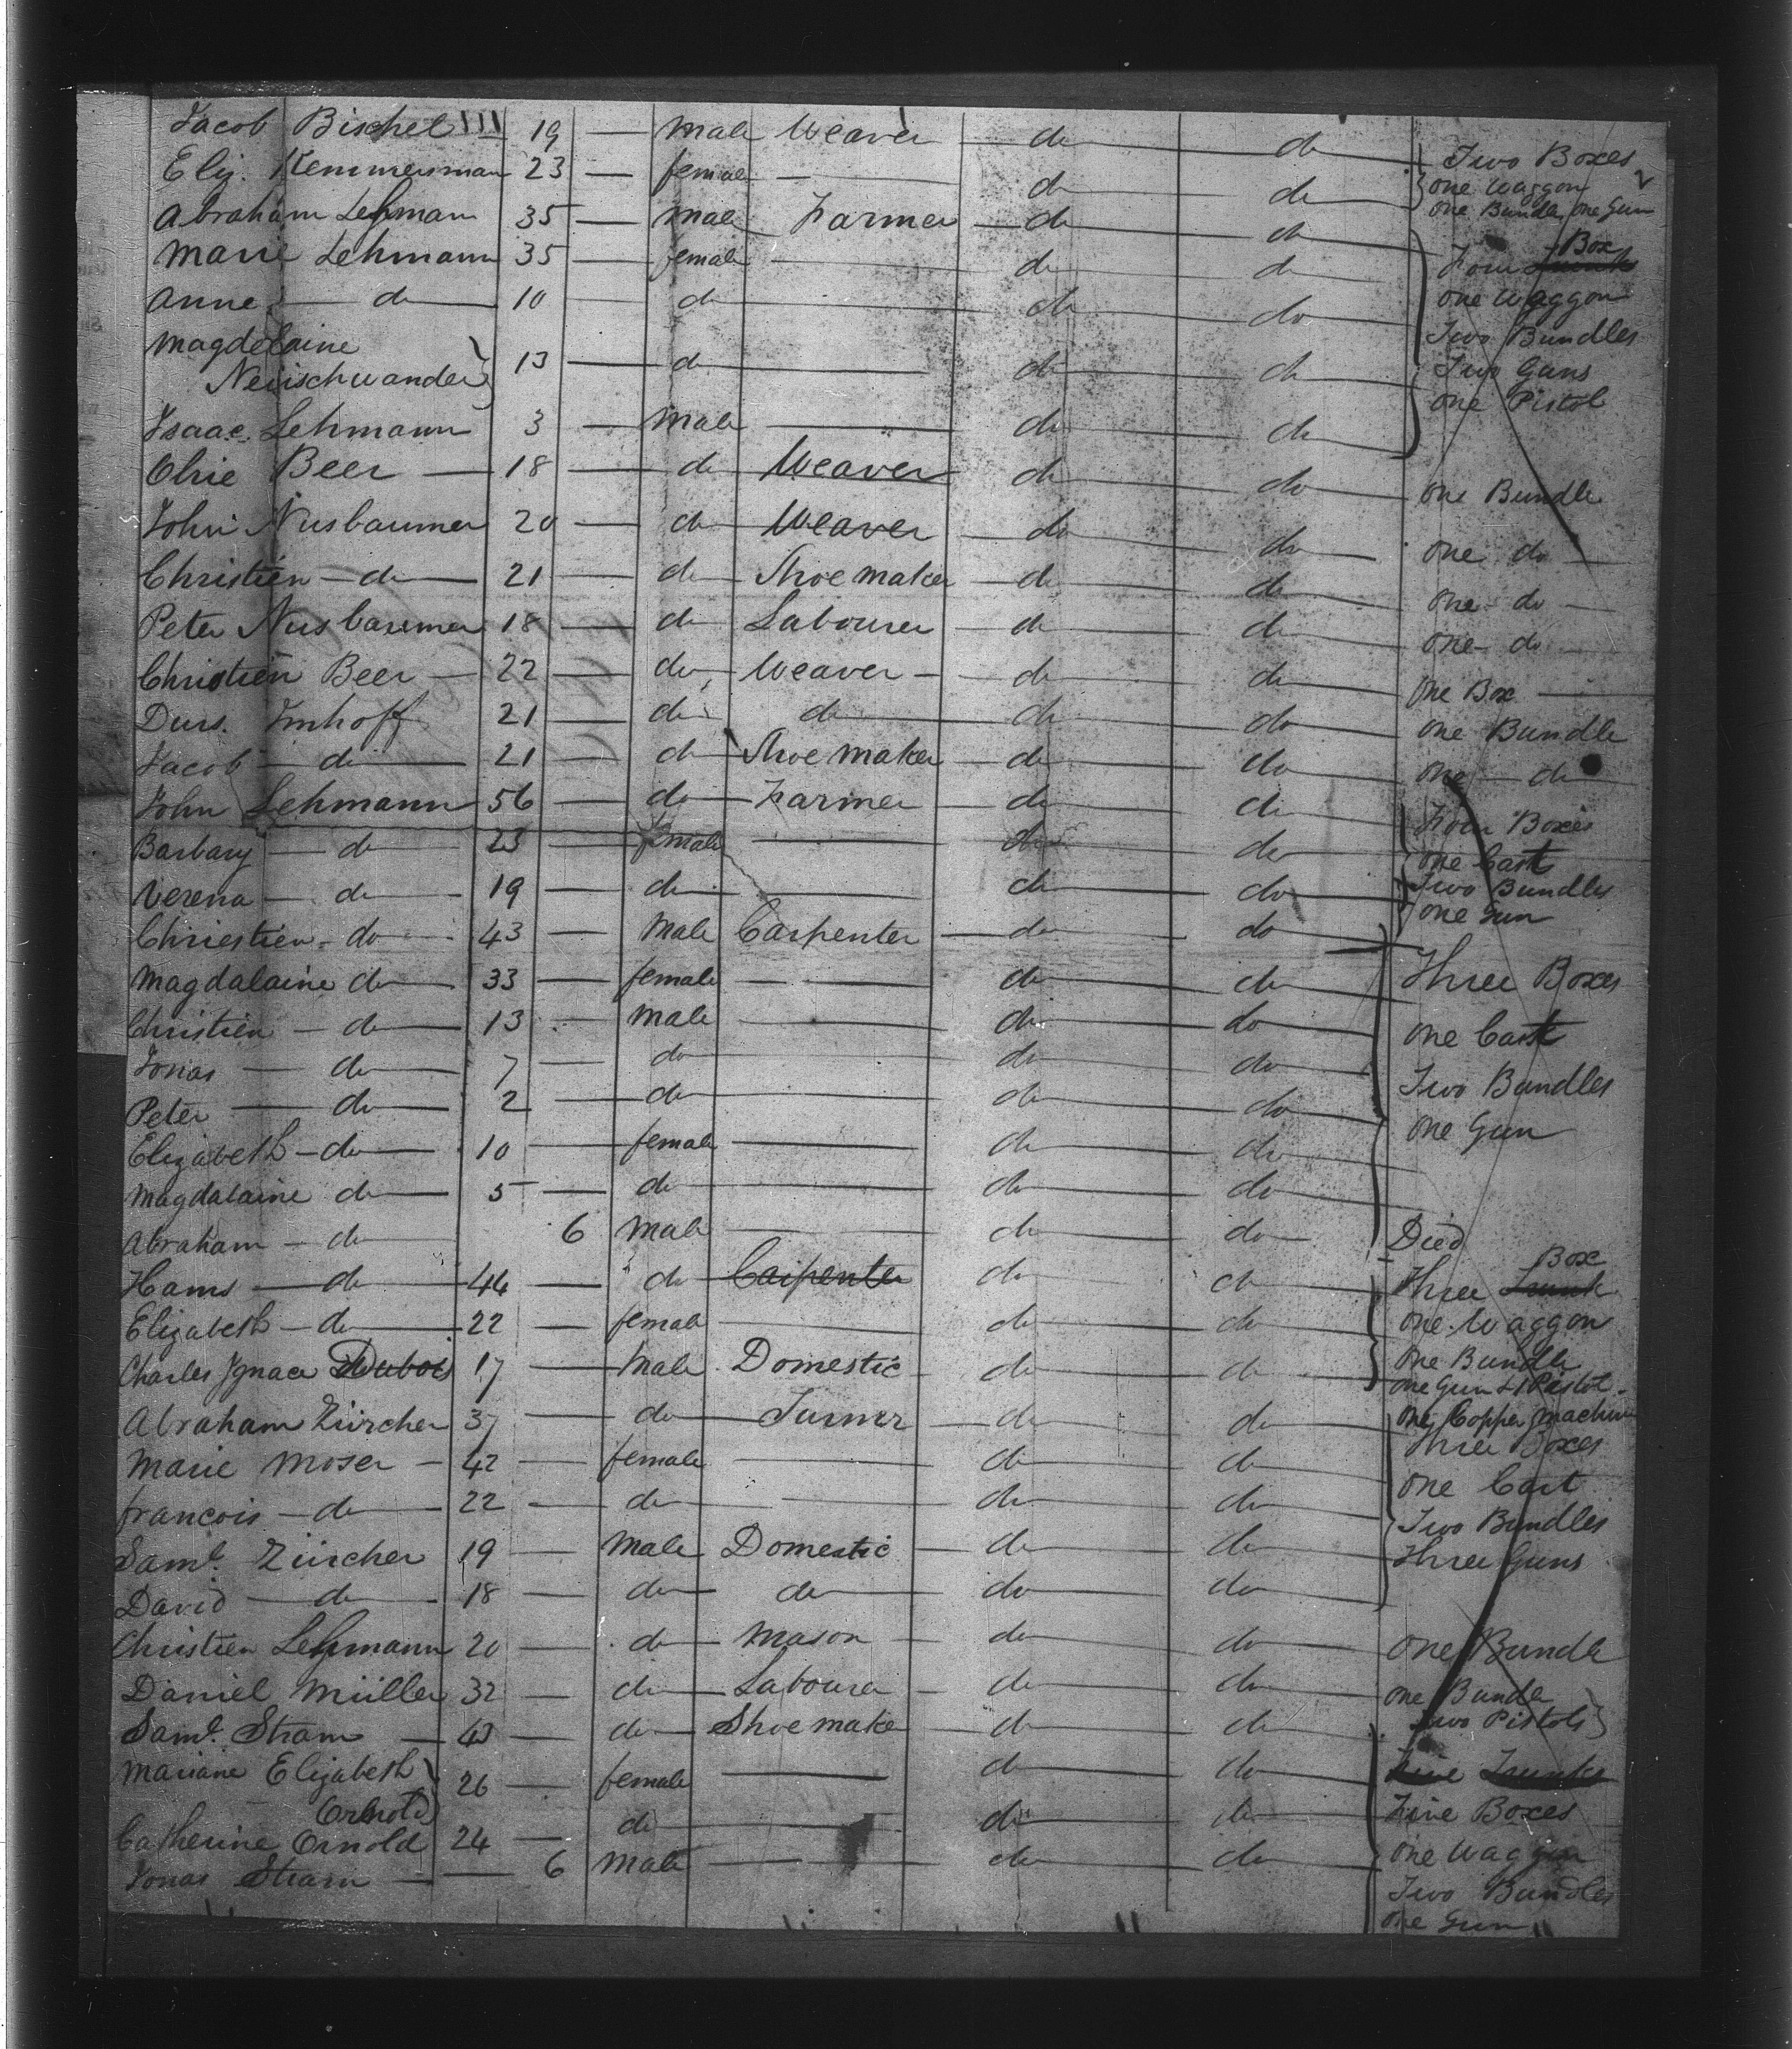 Jacob Bischel — 19 — male Weaver — do — do — Two Boxes
Eliz. Kemmerman 23 — female — do — do — one Waggon
one Bundle, one Gun
Abraham Lehmann 35 — male Farmer — do — do
Marie Lehmann 35 — female — do — do — Four Trunks Box
Anne — do — 10 — do — do — do — one Waggon
Two Bundles
Magdelaine
Neuischwander } 13 — do — do — do — Two Guns
one Pistol
Isaac Lehmann 3 — male — do — do
Chrie Beer — 18 — do — Weaver — do — do — one Bundle
John Nusbaumer 20 — do — Weaver — do — do — one do —
Christien — do — 21 — do — Shoe maker — do — do — one do —
Peter Nusbaumer 18 — do — Labourer — do — do — one do —
Christien Beer — 22 — do — Weaver — do — do — one Box —
Durs. Imhoff 21 — do — do — do — do — one Bundle
Jacob — do — 21 — do — Shoe maker — do — do — one — do
John Lehmann 56 — do — Farmer — do — do — Four Boxes
Barbary — do — 23 — female — do — do — one Cart
Verena — do — 19 — do — do — do — Two Bundles
one Gun
Chriestien — do — 43 — Male Carpenter — do — do
Magdalaine do — 33 — female — do — do — Three Boxes
Christien — do — 13 — male — do — do — one Cart
Jonas — do — 7 — do — do — do — Two Bundles
Peter — do — 2 — do — do — do — one Gun
Elizabeth — do — 10 — female — do — do
Magdalaine do — 5 — do — do — do
Abraham — do — 6 male — do — do — Died
Hams — do — 44 — do — Carpenter — do — do — Three Trunk Box
Elizabeth — do — 22 — female — do — do — one Waggon
Charles Ignace Dubois 17 — Male Domestic — do — do — one Bundle
one Gun & 1 Pistol.
Abraham Zürcher 37 — do — Turner — do — do — one Copper Machine
Three Boxes
Marie Moser — 42 — female — do — do — one Cart
francois — do — 22 — do — do — do — Two Bundles
Saml. Zürcher 19 — Male Domestic — do — do — Three Guns
David — do — 18 — do — do — do — do
Christien Lehmann 20 — do — Mason — do — do — one Bundle
Daniel Müller 32 — do — Labourer — do — do — one Bundle
Two Pistols
Saml. Stram — 43 — do — Shoe maker — do — do
Mariane Elizabeth
Ornold } 26 — female — do — do — Five Trunks
Five Boxes
Catherine Ornold 24 — do — do — do — one Waggon
Jonas Stram — 6 male — do — do — Two Bundles
one Gun